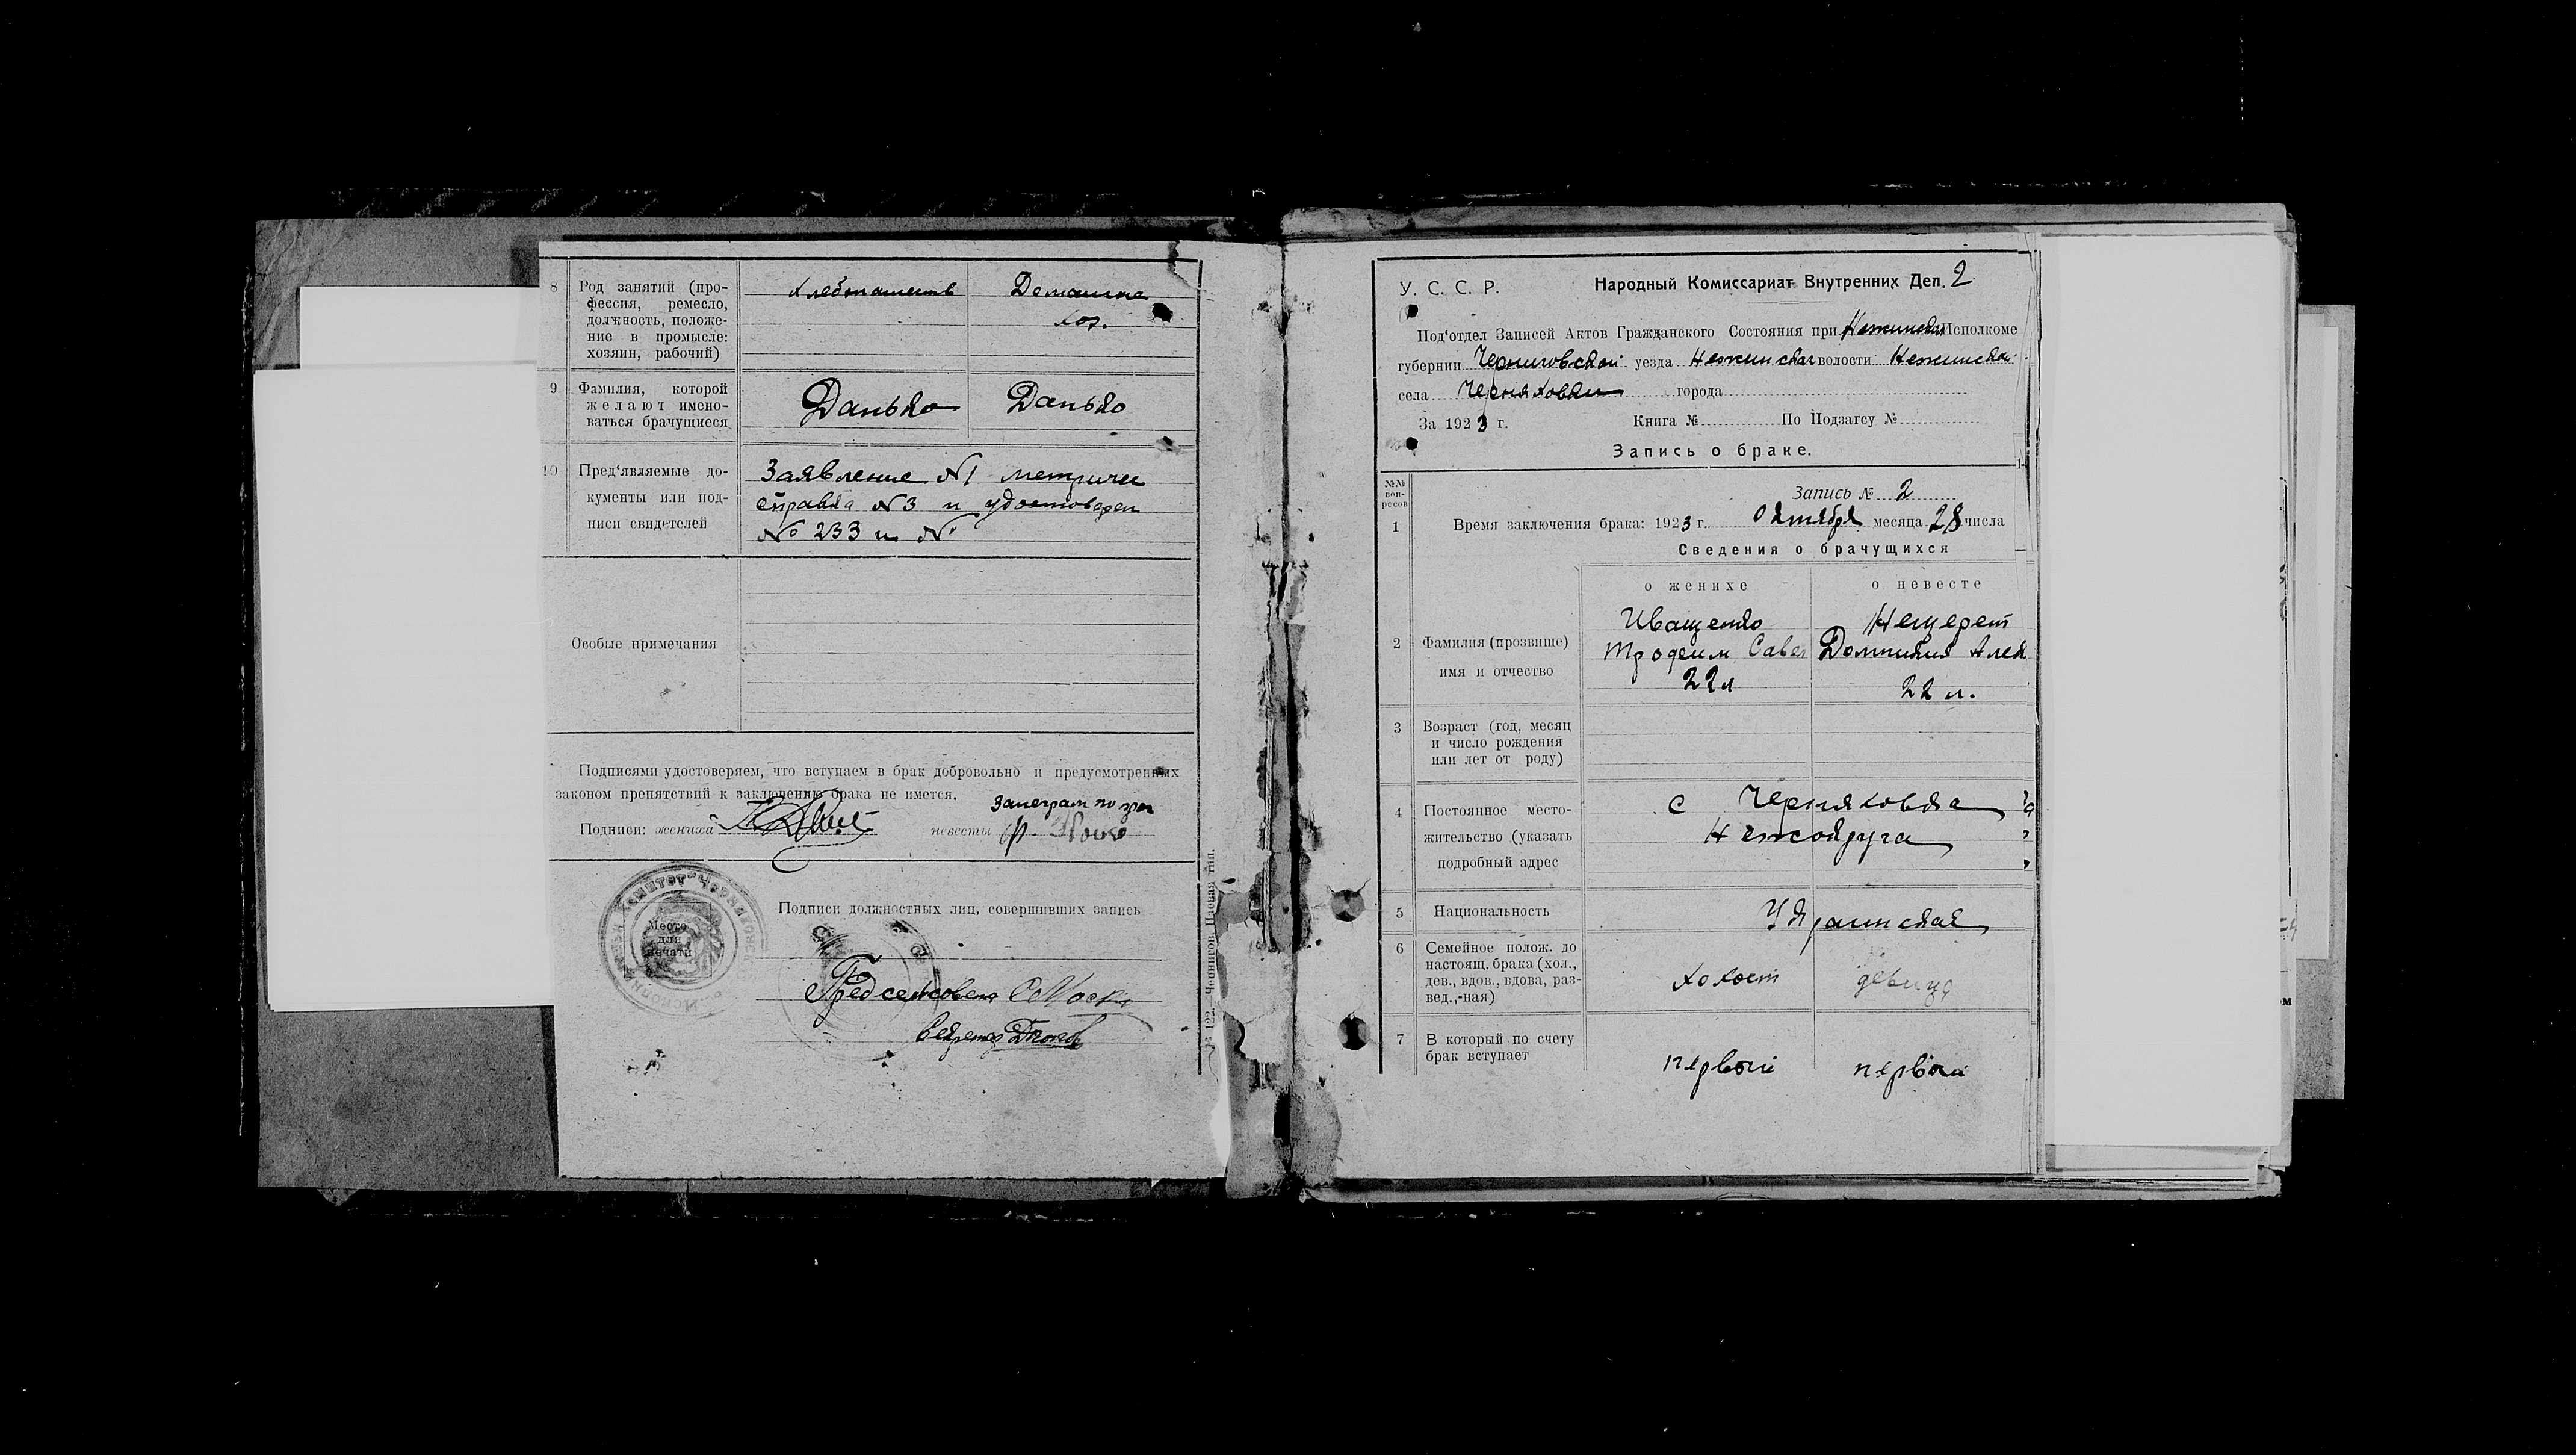 8 Род занятий (про-
фессия, ремесло,
должность, положе-
ние в промысле:
хозяин, рабочий)
Хлебопашеств
Домашнее
хоз.
9 Фамилия, которой
желают имено-
ваться брачущиеся
Данько
Данько
10 Пред'являемые до-
кументы или под-
писи свидетелей
Заявление №1 метричес
справка №3 и удостоверен
№ 233 и №
Особые примечания
Подписями удостоверяем, что вступаем в брак добровольно и предусмотренных
законом препятствий к заключению брака не имется.
Подписи: жениха
невесты
Место
для
печати
Подписи должностных лиц, совершивших запись
Предсельсовета
Секретар
У. С. С. Р.
Народный Комиссариат Внутренних Дел. 2
Под'отдел Записей Актов Гражданского Состояния при Нежинском Исполкоме
губернии Черниговской уезда Нежинская волости Нежинская
села Черняховки города
За 1923 г. Книга № По Подзагсу №
Запись о браке.
№№
воп-
росов
Запись № 2
1 Время заключения брака: 1923 г. Октября месяца 28 числа
Сведения о брачущихся
о женихе
о невесте
2 Фамилия (прозвище)
имя и отчество
Иващенко
Трофим Савел
22 л
Нещерет
Домникия Алек
22 л.
3 Возраст (год, месяц
и число рождения
или лет от роду)
4 Постоянное место-
жительство (указать
подробный адрес
с Черняховка
Нежокруга
5 Национальность
Украинская
6 Семейное полож. до
настоящ. брака (хол.,
дев., вдов., вдова, раз-
вед.,-ная)
холост
девица
7 В который по счету
брак вступает
первый
первый